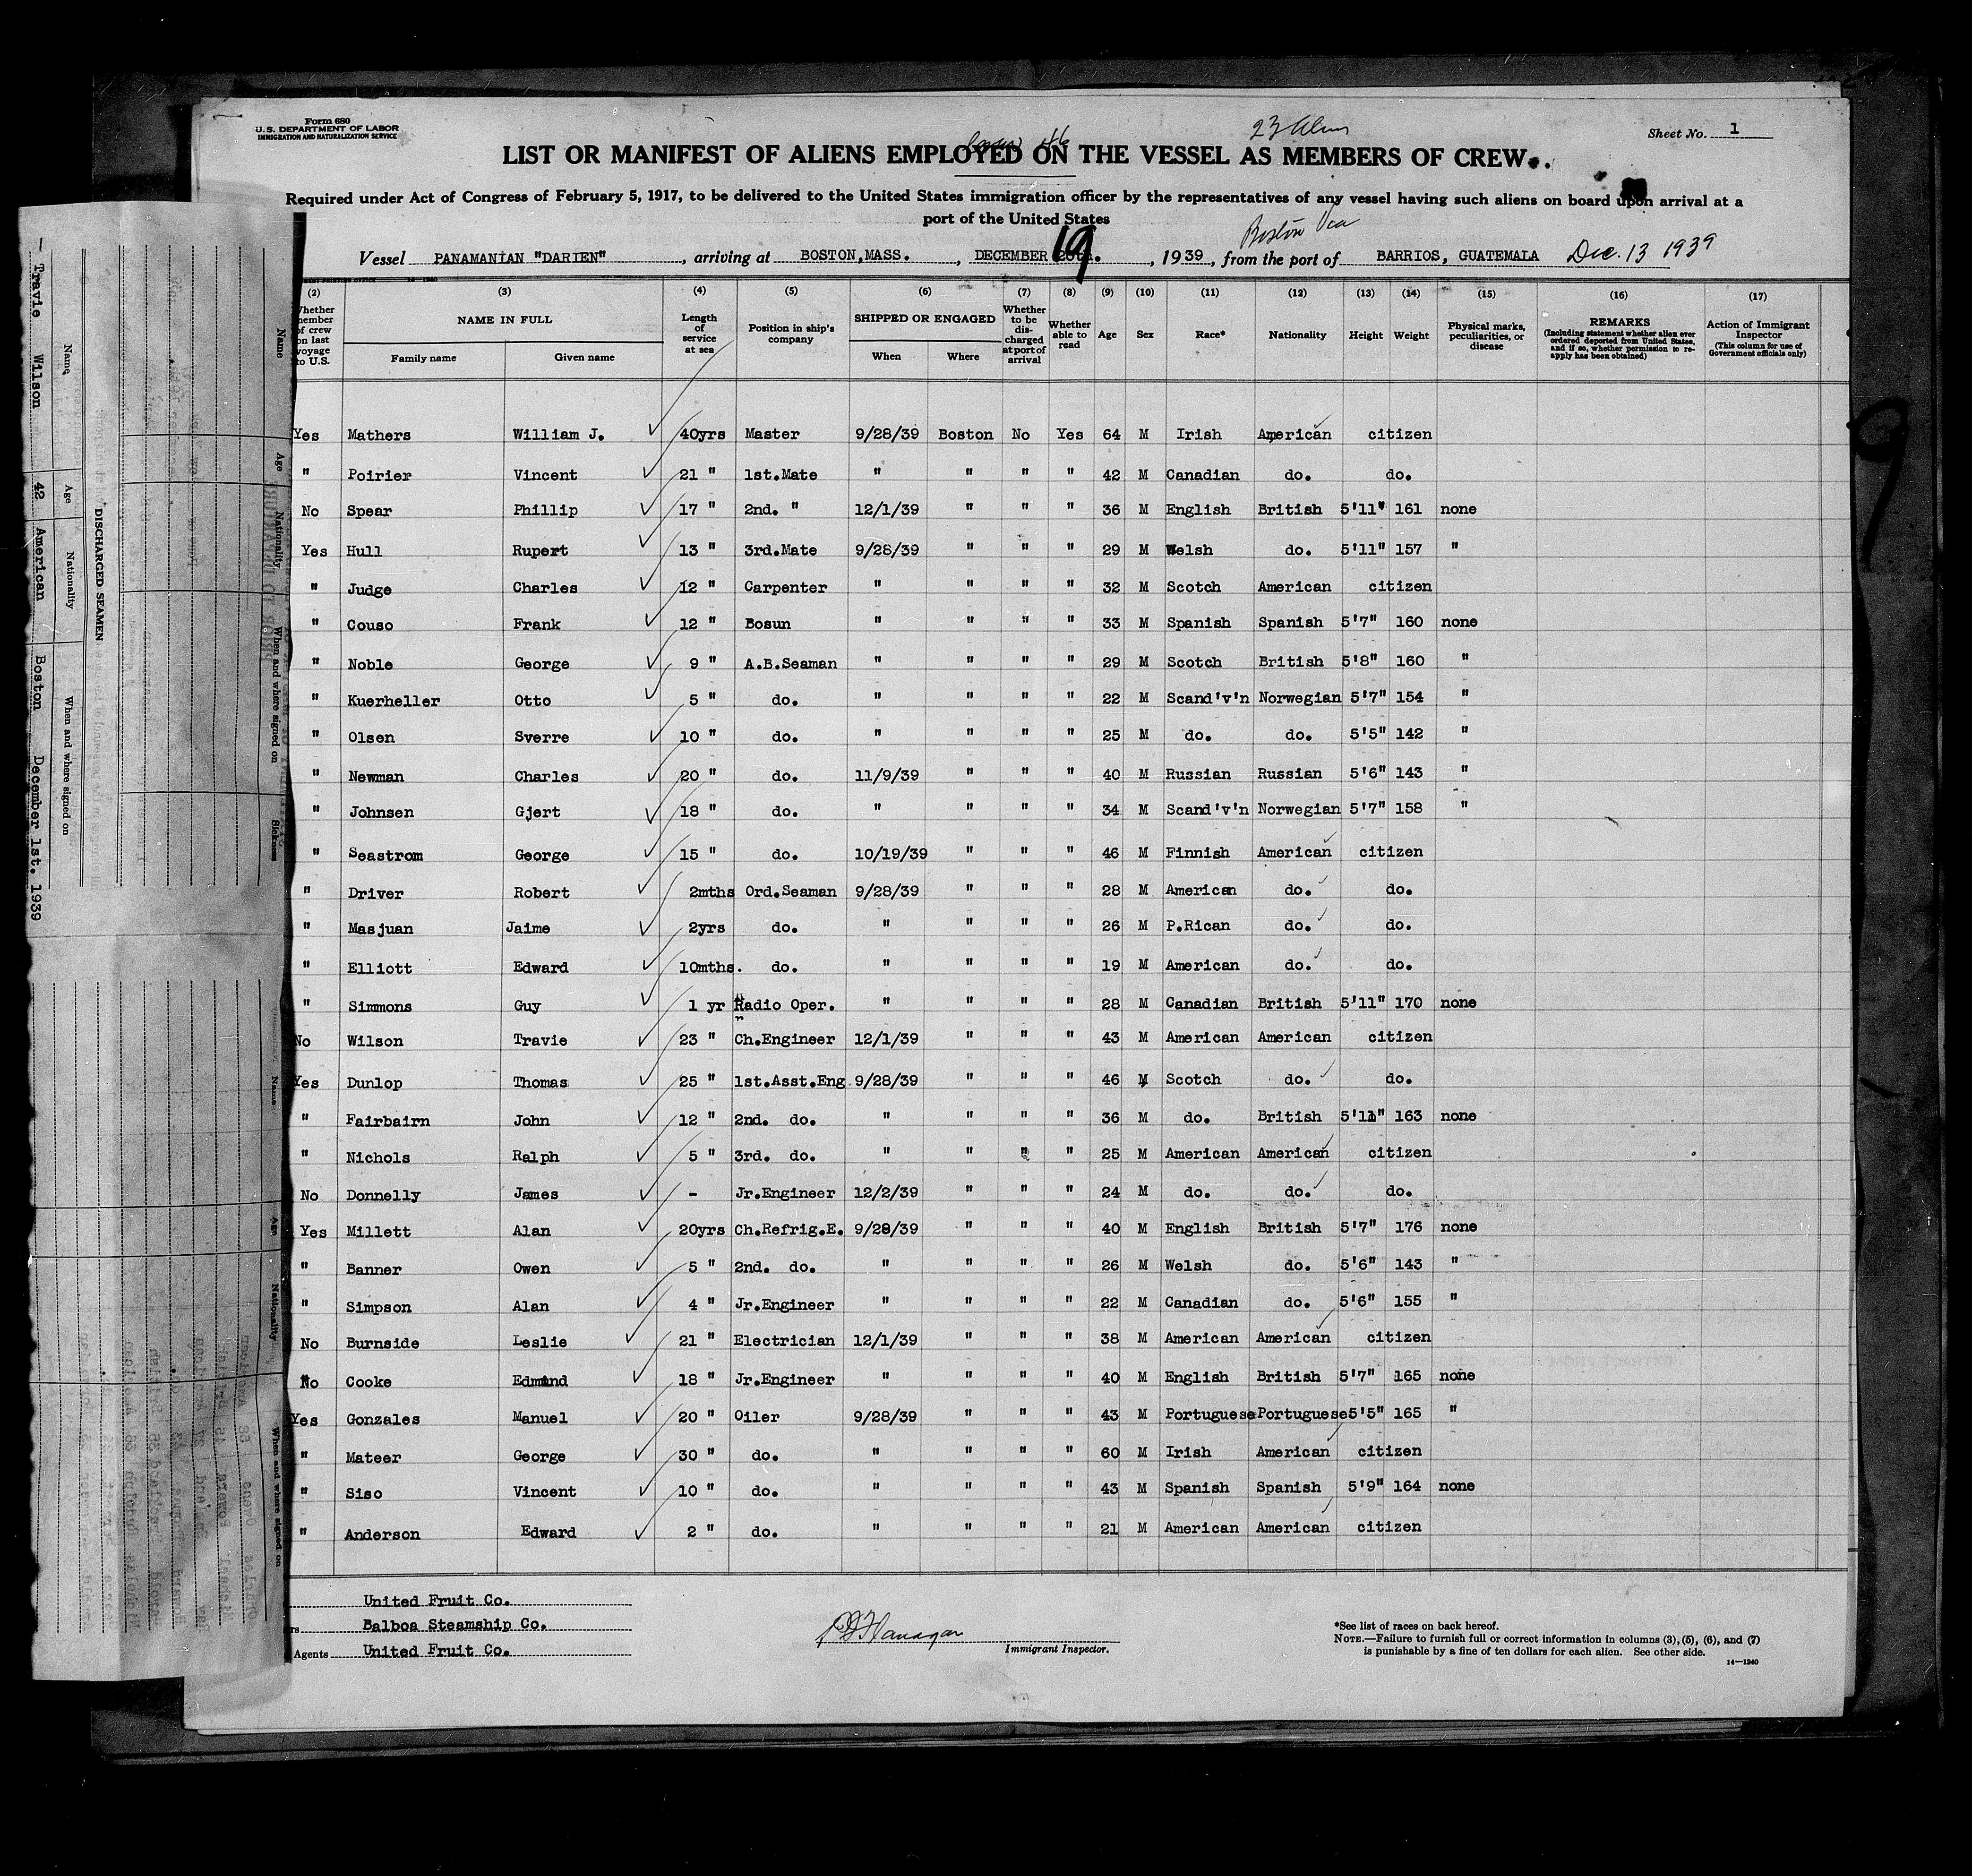 Form 680
U.S. DEPARTMENT OF LABOR
IMMIGRATION AND NATURALIZATION SERVICE
Sheet No. 1
LIST OR MANIFEST OF ALIENS EMPLOYED ON THE VESSEL AS MEMBERS OF CREW
Required under Act of Congress of February 5, 1917, to be delivered to the United States immigration officer by the representatives of any vessel having such aliens on board upon arrival at a
port of the United States
Boston Via
Vessel PANAMANIAN "DARIEN", arriving at BOSTON,MASS., DECEMBER 19, 1939, from the port of BARRIOS, GUATEMALA Dec. 13 1939
(2) (3) (4) (5) (6) (7) (8) (9) (10) (11) (12) (13) (14) (15) (16) (17)
Whether member of crew on last voyage to U.S. NAME IN FULL Family name Given name Length of service at sea Position in ship's company SHIPPED OR ENGAGED When Where Whether to be discharged at port of arrival Whether able to read Age Sex Race* Nationality Height Weight Physical marks, peculiarities, or disease REMARKS (Including statement whether alien ever ordered deported from United States, and if so, whether permission to reapply has been obtained) Action of Immigrant Inspector (This column for use of Government officials only)
Yes Mathers William J. 40yrs Master 9/28/39 Boston No Yes 64 M Irish American citizen
" Poirier Vincent 21 " 1st.Mate " " " " 42 M Canadian do. do.
No Spear Phillip 17 " 2nd. " 12/1/39 " " " 36 M English British 5'11" 161 none
Yes Hull Rupert 13 " 3rd.Mate 9/28/39 " " " 29 M Welsh do. 5'11" 157 "
" Judge Charles 12 " Carpenter " " " " 32 M Scotch American citizen
" Couso Frank 12 " Bosun " " " " 33 M Spanish Spanish 5'7" 160 none
" Noble George 9 " A.B.Seaman " " " " 29 M Scotch British 5'8" 160 "
" Kuerheller Otto 5 " do. " " " " 22 M Scand'v'n Norwegian 5'7" 154 "
" Olsen Sverre 10 " do. " " " " 25 M do. do. 5'5" 142 "
" Newman Charles 20 " do. 11/9/39 " " " 40 M Russian Russian 5'6" 143 "
" Johnsen Gjert 18 " do. " " " " 34 M Scand'v'n Norwegian 5'7" 158 "
" Seastrom George 15 " do. 10/19/39 " " " 46 M Finnish American citizen
" Driver Robert 2mths Ord.Seaman 9/28/39 " " " 28 M American do. do.
" Masjuan Jaime 2yrs do. " " " " 26 M P.Rican do. do.
" Elliott Edward 10mths. do. " " " " 19 M American do. do.
" Simmons Guy 1 yr Radio Oper. " " " " 28 M Canadian British 5'11" 170 none
No Wilson Travie 23 " Ch.Engineer 12/1/39 " " " 43 M American American citizen
Yes Dunlop Thomas 25 " 1st.Asst.Eng 9/28/39 " " " 46 M Scotch do. do.
" Fairbairn John 12 " 2nd. do. " " " " 36 M do. British 5'11" 163 none
" Nichols Ralph 5 " 3rd. do. " " " " 25 M American American citizen
No Donnelly James - Jr.Engineer 12/2/39 " " " 24 M do. do. do.
Yes Millett Alan 20yrs Ch.Refrig.E. 9/28/39 " " " 40 M English British 5'7" 176 none
" Banner Owen 5 " 2nd. do. " " " " 26 M Welsh do. 5'6" 143 "
" Simpson Alan 4 " Jr.Engineer " " " " 22 M Canadian do. 5'6" 155 "
No Burnside Leslie 21 " Electrician 12/1/39 " " " 38 M American American citizen
No Cooke Edmund 18 " Jr.Engineer " " " " 40 M English British 5'7" 165 none
Yes Gonzales Manuel 20 " Oiler 9/28/39 " " " 43 M Portuguese Portuguese 5'5" 165 "
" Mateer George 30 " do. " " " " 60 M Irish American citizen
" Siso Vincent 10 " do. " " " " 43 M Spanish Spanish 5'9" 164 none
" Anderson Edward 2 " do. " " " " 21 M American American citizen
United Fruit Co.
Balboa Steamship Co.
Agents United Fruit Co.
Flanagan
Immigrant Inspector.
*See list of races on back hereof.
NOTE.—Failure to furnish full or correct information in columns (3), (5), (6), and (7)
is punishable by a fine of ten dollars for each alien. See other side.
14—1240
DISCHARGED SEAMEN
Name Age Nationality When and where signed on
Travie Wilson 42 American Boston December 1st. 1939
Name Age Nationality When and where signed on Sickness
Name Age Nationality When and where signed on